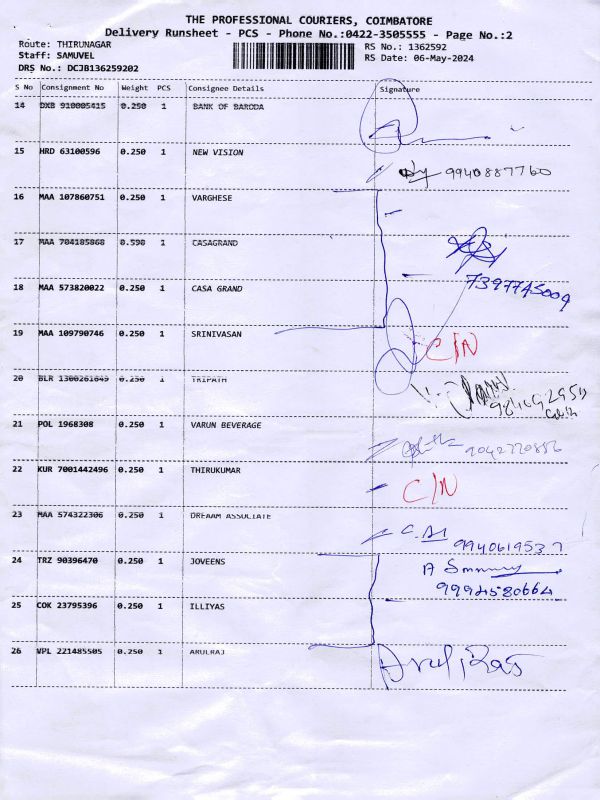 THE PROFESSIONAL COURIERS, COIMBATORE
Delivery Runsheet - PCS - Phone No.:0422-3505555 - Page No.:2
Route: THIRUNAGAR
RS No.: 1362592
Staff: SAMUVEL
RS Date: 06-May-2024
DRS No.: DCJB136259202
S No Consignment No Weight PCS Consignee Details Signature
14 DXB 910005415 0.250 1 BANK OF BARODA
15 HRD 63100596 0.250 1 NEW VISION
9940887760
16 MAA 107860751 0.250 1 VARGHESE
17 MAA 704185868 0.590 1 CASAGRAND
18 MAA 573820022 0.250 1 CASA GRAND
7397745009
19 MAA 109790746 0.250 1 SRINIVASAN
C/N
20 BLR 0.250 1
21 POL 1968308 0.250 1 VARUN BEVERAGE
22 KUR 7001442496 0.250 1 THIRUKUMAR
C/N
23 MAA 574322306 0.250 1 DREAAM ASSOCIATE
9940619537
24 TRZ 90396470 0.250 1 JOVEENS
25 COK 23795396 0.250 1 ILLIYAS
26 VPL 221485505 0.250 1 ARULRAJ